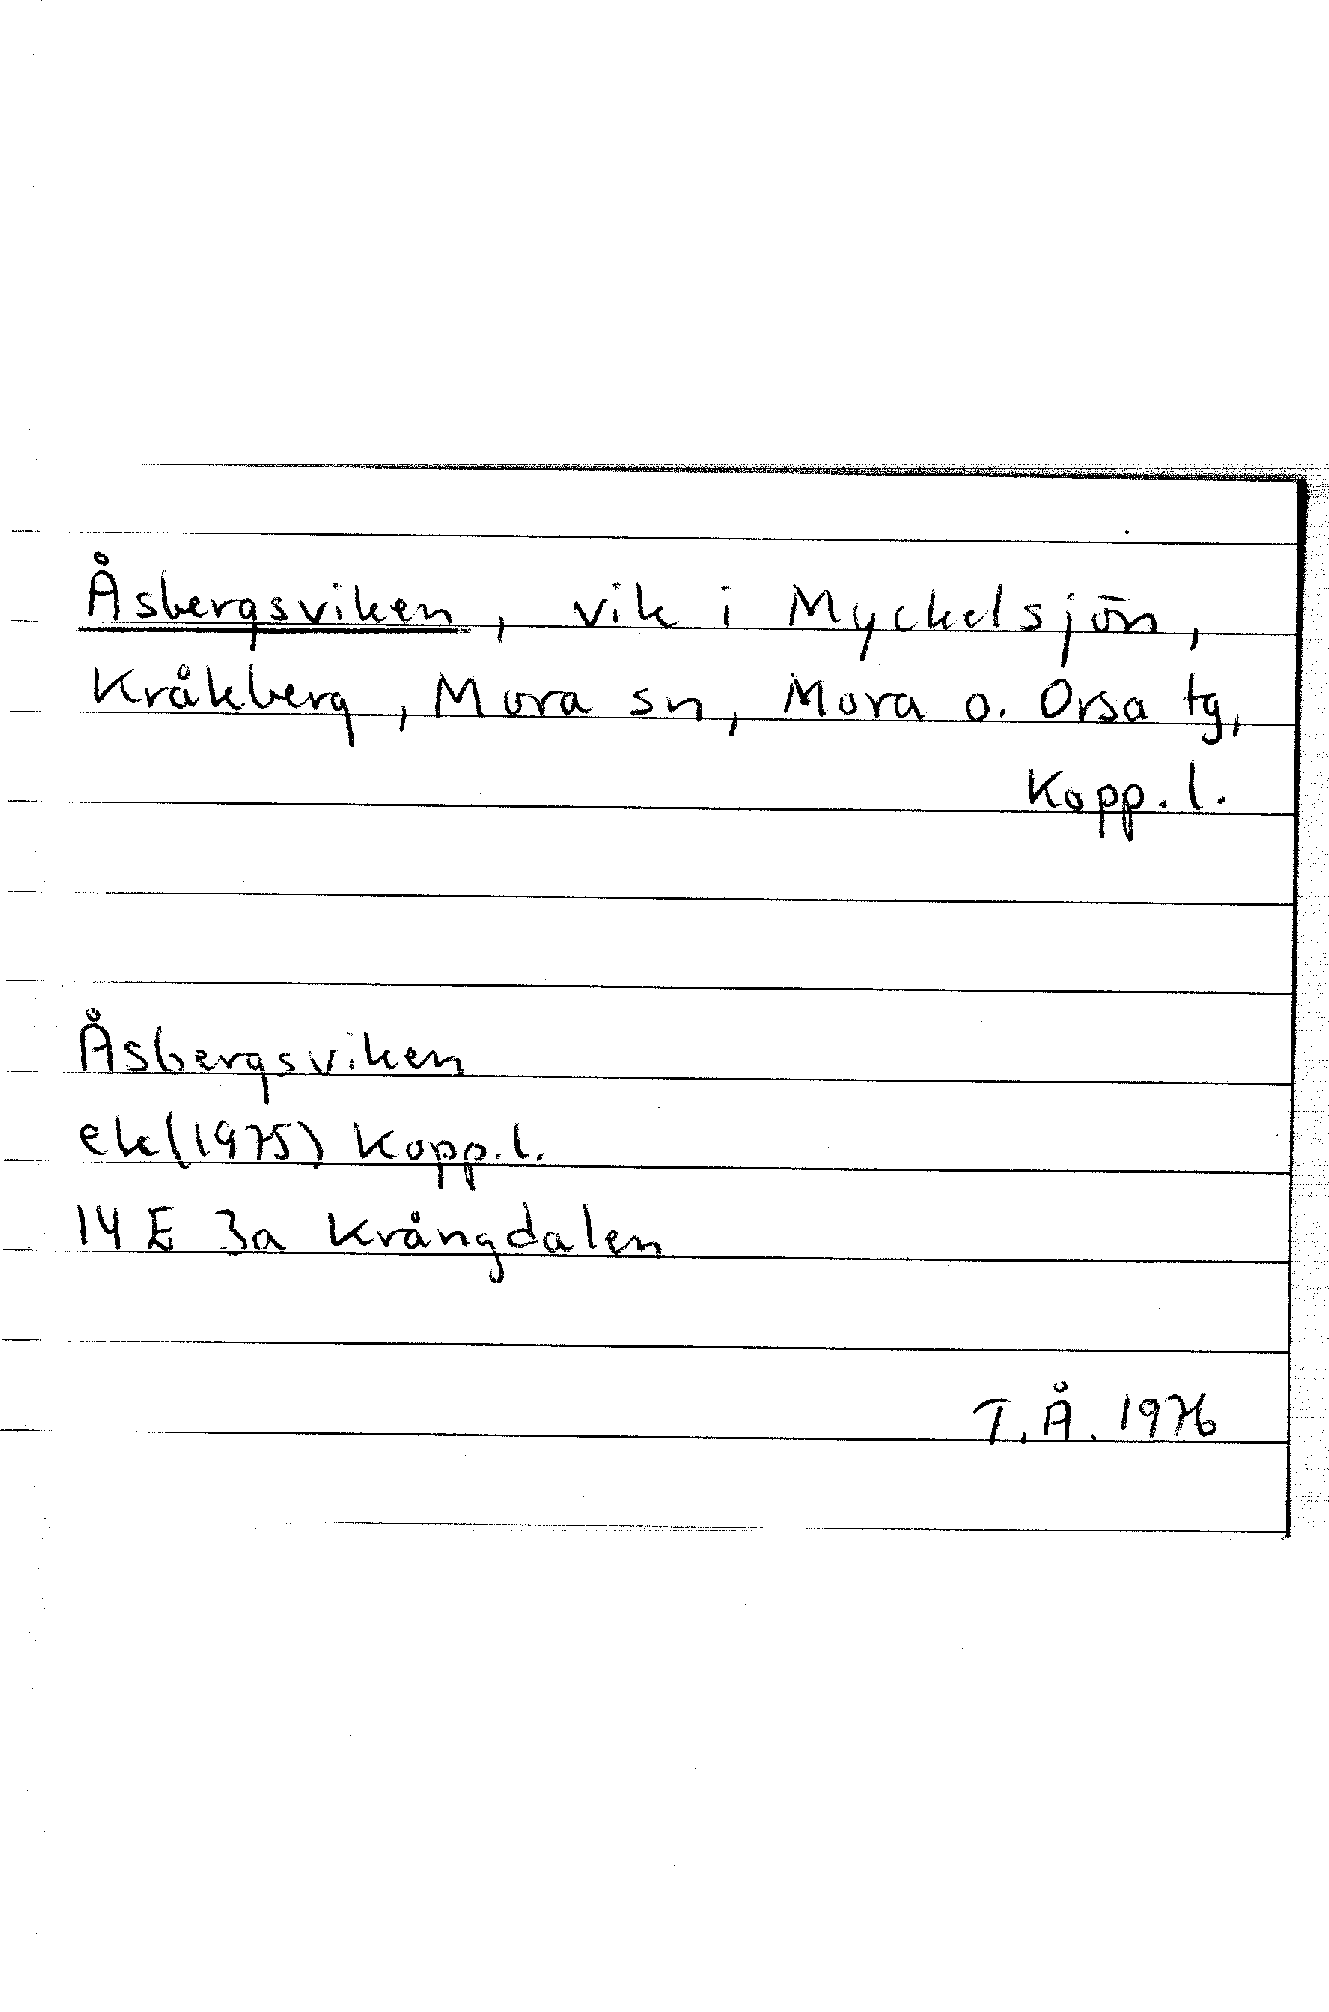 Åsbergsviken, vik i Myckelsjön,
Kråkberg, Mora sn, Mora o. Orsa tg,
Kopp. l.
Åsbergsviken
ek(1975) Kopp. l.
14 E 3a Krångdalen
T. Å. 1976